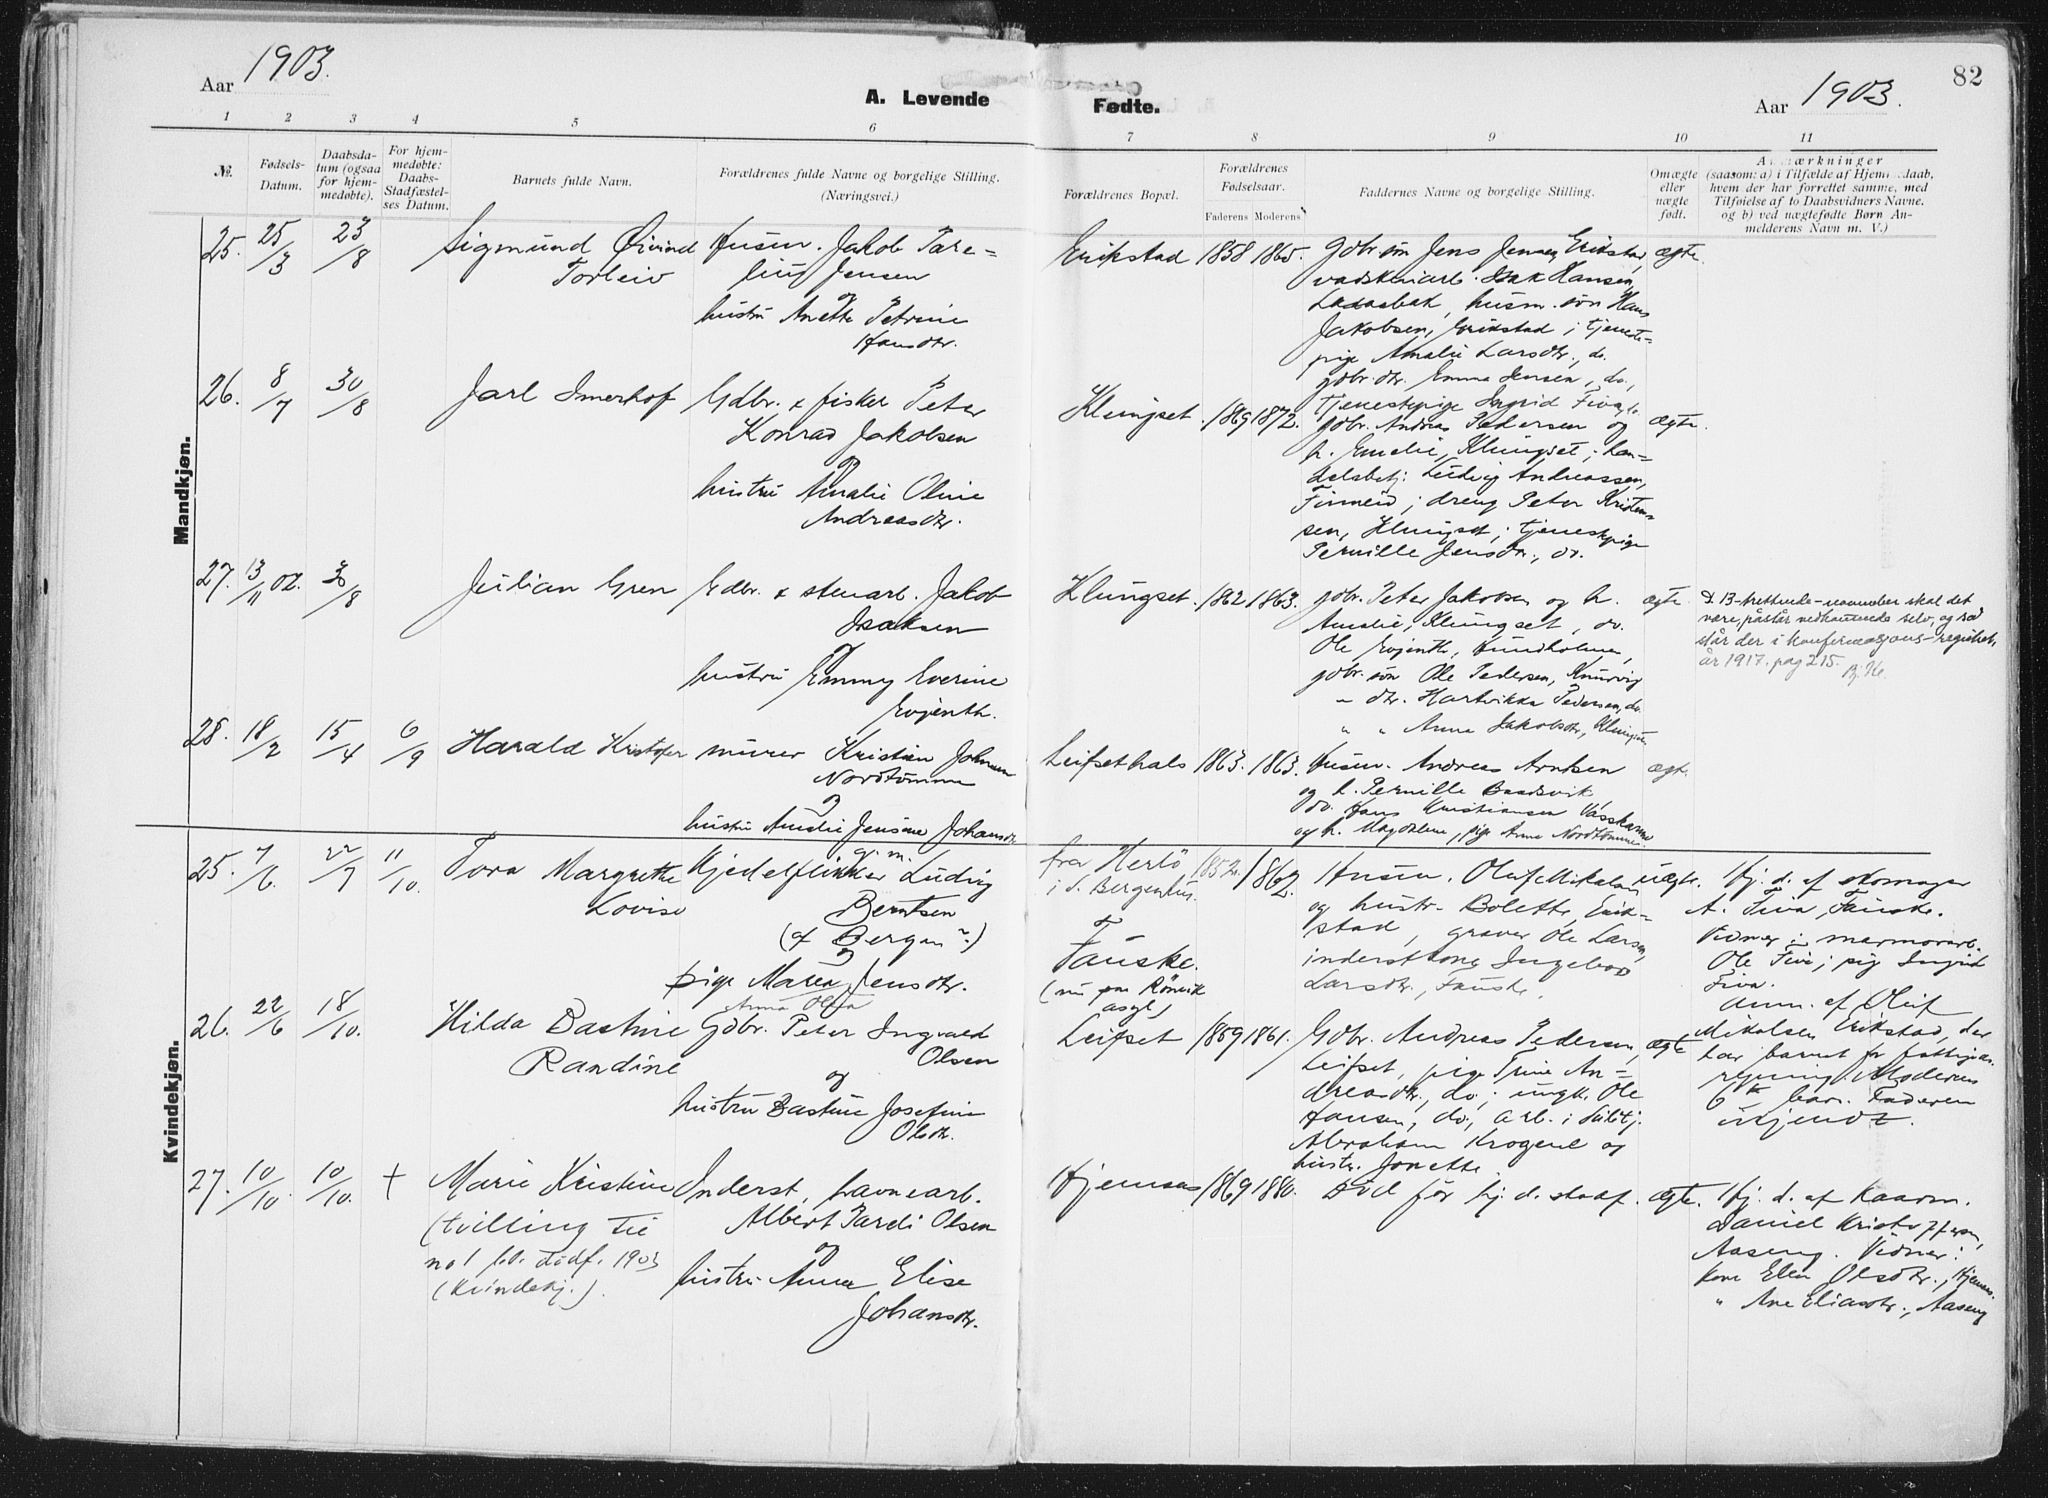 Aar 1903.
A. Levende
Fødte.
Aar 1903.
82
1 2 3 4 5 6
7 8 9 10 11
№.
Fødsels-
Datum.
Daabsda-
tum (ogsaa
for hjem-
medøbte).
For hjem-
medøbte:
Daabs-
Stadfæstel-
ses Datum.
Barnets fulde Navn.
Forældrenes fulde Navne og borgelige Stilling.
(Næringsvei.)
Forældrenes Bopæl.
Forældrenes
Fødselsaar.
Faderens Moderens
Faddernes Navne og borgelige Stilling.
Omægte
eller
nægte
født.
Anmærkninger
(saasom: a) i Tilfælde af Hjemmedaab,
hvem der har forrettet samme, med
Tilføielse af to Daabsvidners Navne.
og b) ved nægtefødte Børn An-
melderens Navn m. V.)
Mandkjøn.
25.
25/3
23/8
Sigmund Øivind
Torleiv
Husm. Jakob Pare-
lius Jensen
og
hustru Anette Petrine
Hansdtr.
Erikstad
1858
1865.
Gdbr søn Jens Jensen Erikstad,
Isak Hansen,
husm. søn Hans
Jakobsen, Erikstad; tjeneste-
pige Amalie Larsdtr., do.
gdbr. dtr. Emma Jensen, do.,
tjenestepige Ingrid
ægte.
26.
8/7
30/8
Jarl Imerhof
Gdbr. & fisker Peter
Konrad Jakobsen
og
hustru Amalie Oline
Andreasdtr.
Klungset.
1869
1872.
gdbr. Andreas Pedersen og
h. Emelie, Klungset; han-
delsbetj. Ludvig Andreassen,
Finneid; dreng Peter Kristen-
sen, Klungset; tjenestepige
Pernille Jensdtr., do.
ægte.
27.
13/11 02.
30/8
Julian Gren
Gdbr. & stenarb. Jakob
Isaksen
og
hustru Emmy Everine
Evjenth.
Klungset.
1862
1863.
gdbr. Peter Jakobsen og h.
Amalie, Klungset, do.
Ole Evjenth, Hundholmen,
gdbr. søn Ole Pedersen,
" dtr. Hartvikka Pedersen, do.
" " Anna Jakobsdtr., Klungset
ægte.
D. 13-trettende-november skal det
være, påstår vedkommende selv, og så
står der i konfirmasjons-registret,
år 1917. pag 215.
28.
18/2
15/4
6/9
Harald Kristofer
murer Kristian Johnsen
Nordtømme
og
hustru Amalie Jensine Johansdtr
Leifsethals
1863.
1863.
Husm. Andreas Arntsen
og h. Pernille Baadsvik
do. Hans Kristiansen
og h. Magdalene, pige Anna Nordtømme
ægte.
Kvindekjøn.
25.
7/6.
22/7
11/10.
Tora Margrethe
Lovise
g. m.
Kjedelflikker Ludvig
Berntsen
(af Bergen?)
og
pige Maria Jensdtr.
Anna Olga
fra Herlö
i S. Bergenhus.
og
Fauske.
(nu paa Rønvik
asyl)
1852.
1862.
Husm. Oluf Mikalsen
og hustr. Bolette Erik-
stad, graver Ole Larsen,
inderstkone Ingebor
Larsdtr., Fauske.
uægte.
Hj. d. af skomager
A. Fiva, Fauske.
Vidner: marmorarb.
Ole Five; pig Ingrid
Fiva.
Anm. af Oluf
Mikalsen Erikstad, der
har barnet for fattigsty.
regning. Moderens
6te barn. Faderen
ukjendt.
26.
22/6
18/10.
Hilda Bastine
Randine
Gdbr. Peter Ingvald
Olsen
og
hustru Bastine Josefine
Olsdtr.
Leifset
1859
1861.
Gdbr. Andreas Pedersen,
Leifset, pige Trine An-
dreasdtr., do; ungk. Ole
Hansen, do., arb. i Sulitj.
Abraham Krogene og
hustr. Jonette
ægte
27.
10/10.
10/10.
+
Marie Kristine
(tvilling til
no 1 dödf. 1903
(Kvindekj.).
Inderst, havnearb.
Albert Pardi Olsen
og
hustru Anna Elise
Johansdtr.
Hjemsaas
1869
1880.
Död för hj. d. stadf.
ægte.
Hj. d. af Kaarm.
Daniel Kristoffersen,
Aaseng. Vidner:
kone Elen Olsdtr., Hjemsaas.
" Ane Eliasdtr., Aaseng